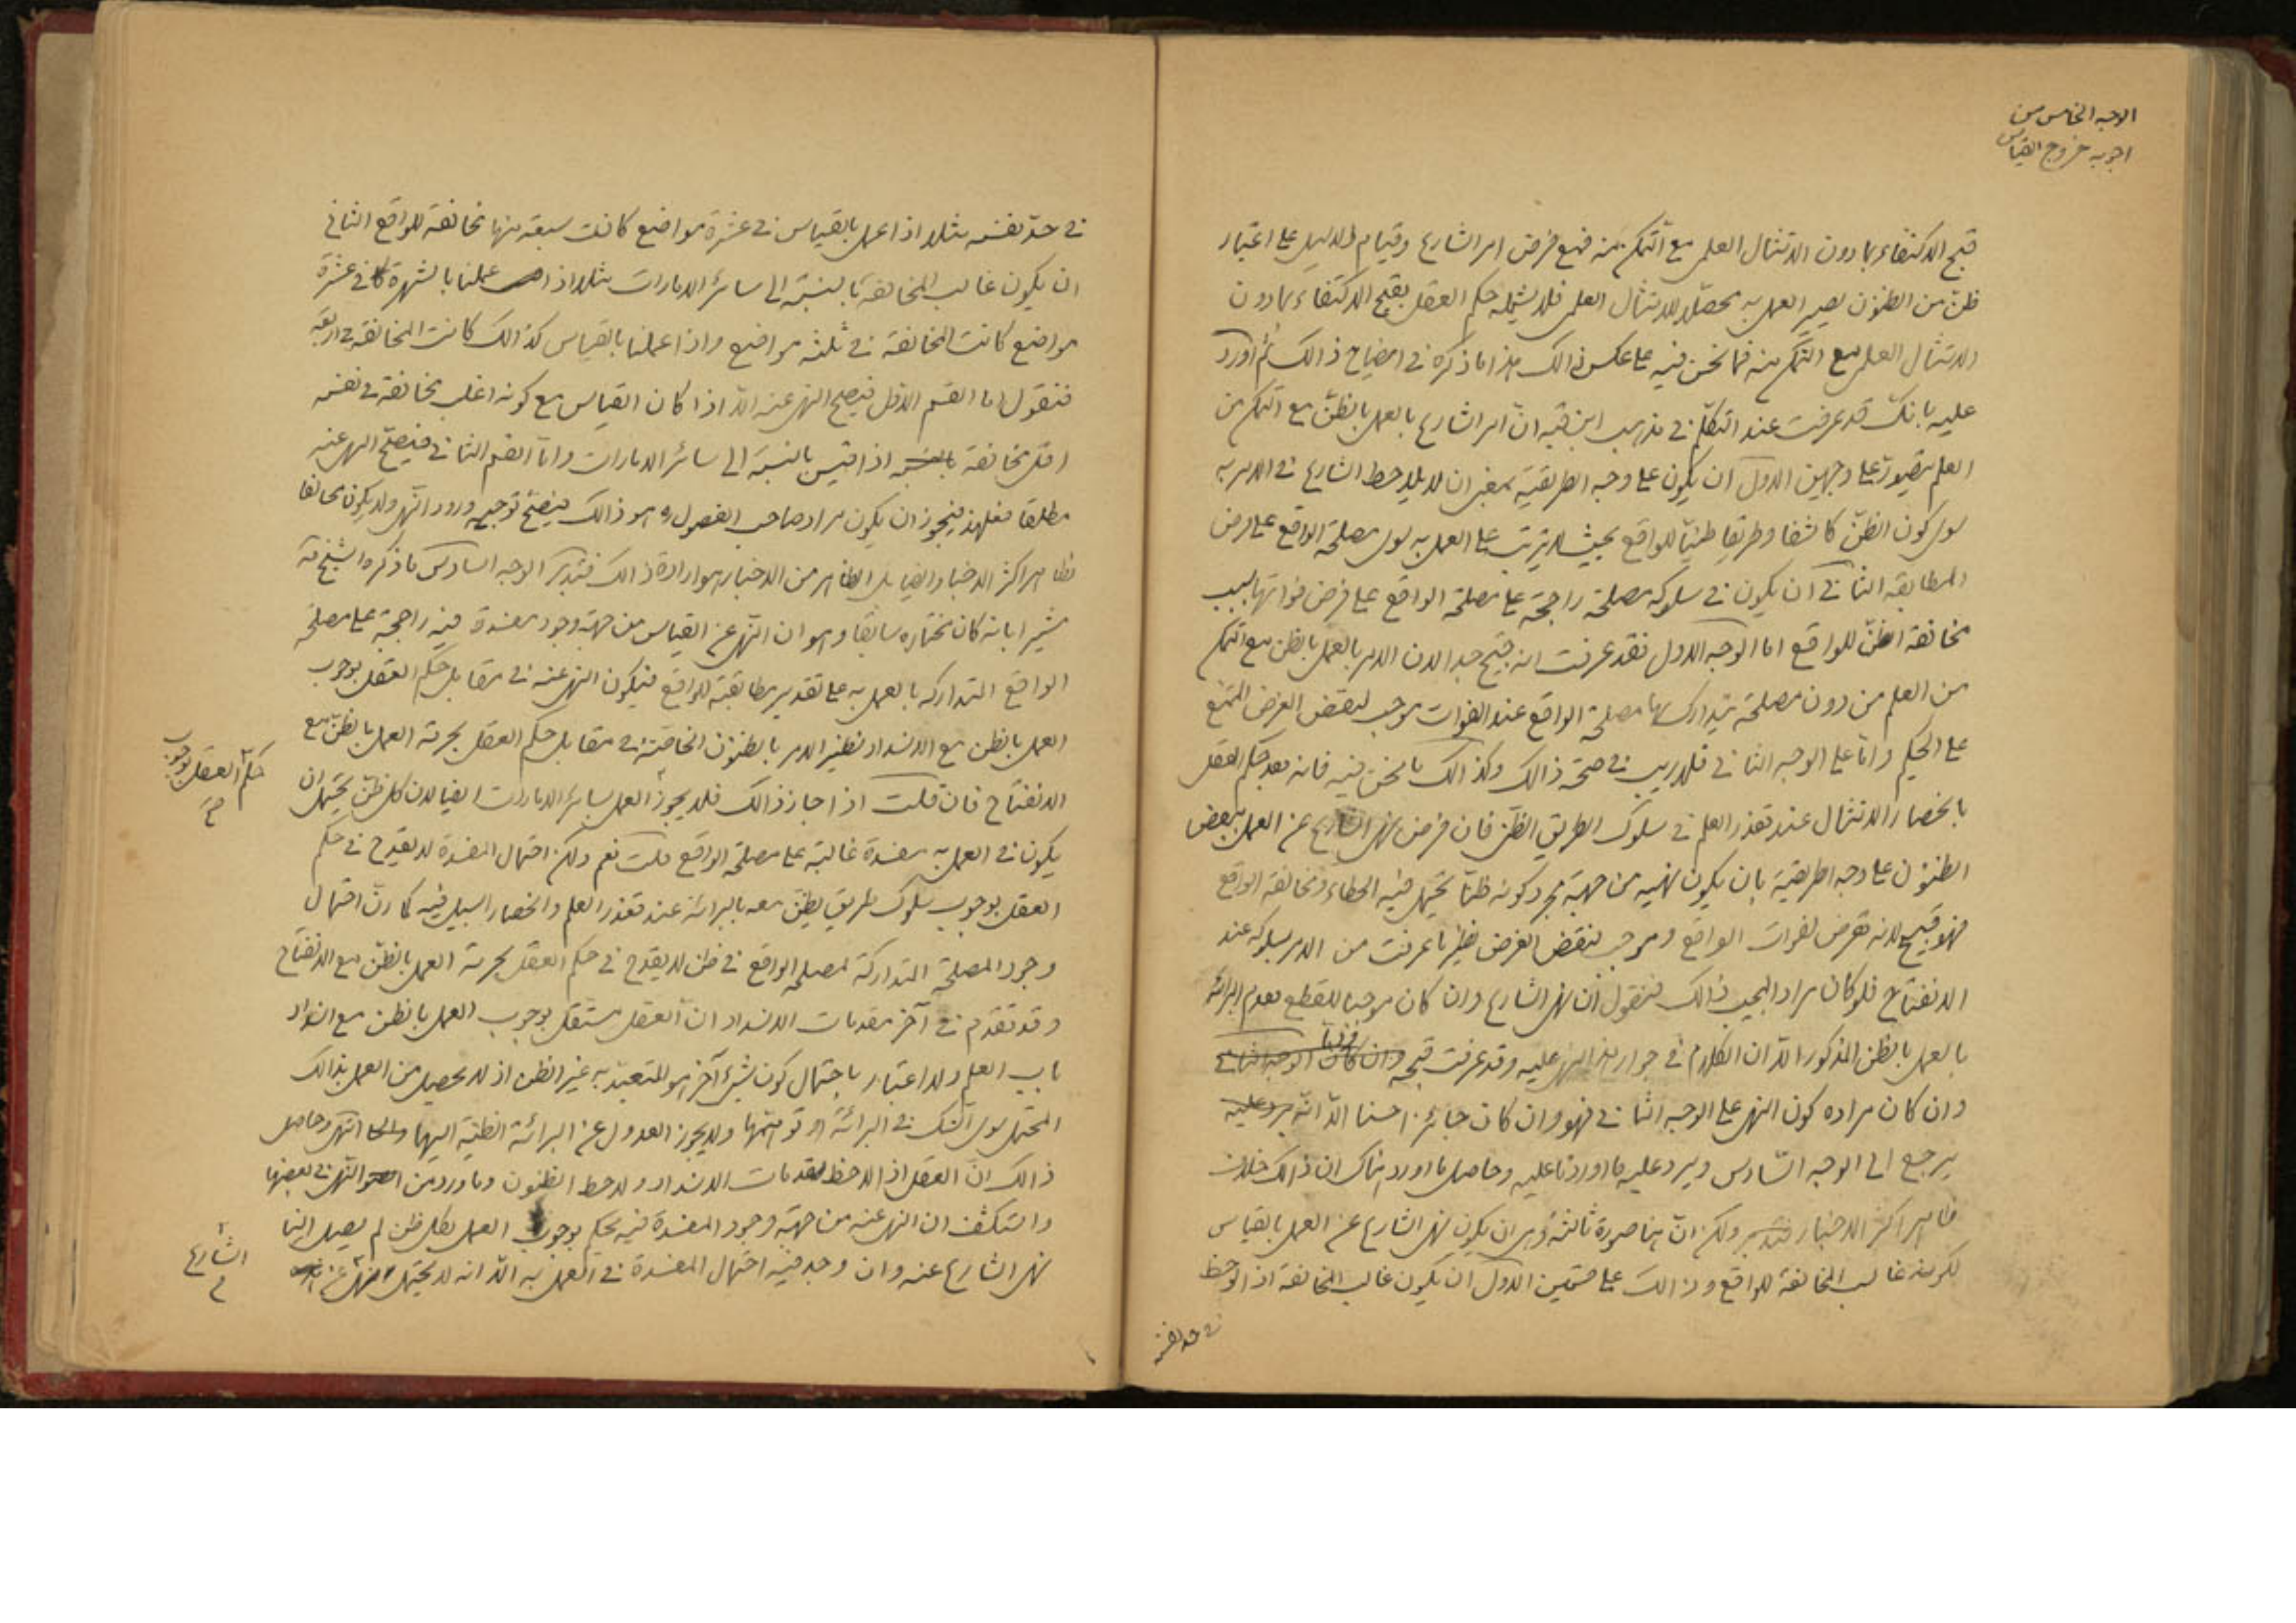 الوجه الخامس من
اجوبه خروج القياس
قبح الاكتفاء بما دون الامتثال العلمى مع التمكن منه فمع فرض امر الشارع وقيام الدليل على اعتبار
ظن من الظنون يصير العمل به محصلا للامتثال العلمى فلا يشمله حكم العقل بقبح الاكتفاء بما دون
الامتثال العلمى مع التمكن منه فما نحن فيه على عكس ذالك هذا ما ذكره فى ايضاح ذالك ثم اورد
عليه بانك قد عرفت عند التكلم فى مذهب ابن قبه ان امر الشارع بالعمل بالظن مع التمكن من
العلم يتصور على وجهين الاول ان يكون على وجه الطريقية بمعنى ان لا يلاحظ الشارع فى الامر به
سوى كون الظن كاشفا وطريقا ظنيا للواقع بحيث لا يترتب على العمل به سوى مصلحة الواقع على فرض
المطابقه الثانى ان يكون فى سلوكه مصلحة راجحة على مصلحة الواقع على فرض فواتها بسبب
مخالفة الظن للواقع اما الوجه الاول فقد عرفت انه قبيح جدا لان الامر بالعمل بالظن مع التمكن
من العلم من دون مصلحة يتدارك بها مصلحة الواقع عند الفوات موجب لنقض الغرض الممتنع
على الحكيم واما على الوجه الثانى فلا ريب فى صحة ذالك وكذالك ما نحن فيه فانه بعد حكم العقل
بانحصار الامتثال عند تعذر العلم فى سلوك الطريق الظنى فان فرض نهى الشارع عن العمل ببعض
الظنون على وجه الطريقية بان يكون نهيه من جهة مجرد كونه ظنا يحتمل فيه الخطاء ومخالفة الواقع
فهو قبيح لانه تعرض لفوات الواقع وموجب لنقض الغرض نظير ما عرفت من الامر بسلوكه عند
الانفتاح فلو كان مراد المجيب ذالك فنقول ان نهى الشارع وان كان موجبا للقطع بعدم البرائة
بالعمل بالظن المذكور الا ان الكلام فى جواز هذا النهى عليه وقد عرفت قبحه وان كان الوجه الثانى
وان كان مراده كون النهى على الوجه الثانى فهو وان كان جائزا حسنا الا انه يرد عليه
يرجع الى الوجه السادس ويرد عليه ما اوردنا عليه وحاصل ما اورد هناك ان ذالك خلاف
ظاهر اكثر الاخبار فتدبر ولكن ان هنا صورة ثالثة وهى ان يكون نهى الشارع عن العمل بالقياس
لكونه غالب المخالفة للواقع وذالك على قسمين الاول ان يكون غالب المخالفة اذا لوحظ
فى حد نفسه
فى حد نفسه مثلا اذا عمل بالقياس فى عشرة مواضع كانت سبعة منها مخالفة للواقع الثانى
ان يكون غالب المخالفة بالنسبة الى سائر الامارات مثلا اذا عملنا بالشهرة فى عشرة
مواضع كانت المخالفة فى ثلثه مواضع واذا عملنا بالقياس كذالك كانت المخالفة فى اربعة
فنقول اما القسم الاول فيصح النهى عنه الا اذا كان القياس مع كونه اغلب مخالفة فى نفسه
اقل مخالفة بالنسبة اذا قيس بالنسبة الى سائر الامارات واما القسم الثانى فيصح النهى عنه
مطلقا فعلى هذا فيجوز ان يكون مراد صاحب الفصول ره هو ذالك فيصح توجيه ورود النهى ولا يكون مخالفا
لظاهر اكثر الاخبار ايضا بل الظاهر من الاخبار هو ارادة ذالك فتدبر الوجه السادس ما ذكره الشيخ قه
مشيرا بانه كان يختاره سابقا وهو ان النهى عن القياس من جهة وجود مفسدة فيه راجحة على مصلحة
الواقع المتداركه بالعمل به على تقدير مطابقته للواقع فيكون النهى عنه فى مقابل حكم العقل بوجوب
العمل بالظن مع الانسداد نظير الامر بالظنون الخاصة فى مقابل حكم العقل بحرمة العمل بالظن مع
حكم العقل بوجوب
الانفتاح فان قلت اذا جاز ذالك فلا يجوز العمل بسائر الامارات ايضا لان كل ظن يحتمل ان
يكون فى العمل به مفسدة غالبة على مصلحة الواقع قلت نعم ولكن احتمال المفسدة لا يقدح فى حكم
العقل بوجوب سلوك طريق يظن معه بالبرائة عند تعذر العلم وانحصار السبيل فيه كما ان احتمال
وجود المصلحة المتداركة لمصلحة الواقع فى ظن لا يقدح فى حكم العقل بحرمة العمل بالظن مع الانفتاح
وقد تقدم فى آخر مقدمات الانسداد ان العقل مستقل بوجوب العمل بالظن مع انسداد
باب العلم ولا اعتبار باحتمال كون شىء آخر هو المتعبد به غير الظن اذ لا يحصل من العمل بذالك
المحتمل سوى الشك فى البرائة او توهمها ولا يجوز العدول عن البرائة الظنية اليها انتهى وحاصل
ذالك ان العقل اذا لاحظ مقدمات الانسداد ولاحظ الظنون وما ورد من النهى فى بعضها
واستكشف ان النهى عنه من جهة وجود المفسدة فيه يحكم بوجوب العمل بكل ظن لم يصل الينا
الشارع
نهى الشارع عنه وان وجد فيه احتمال المفسدة فى العمل به الا انه لا يحتمل نهى عن